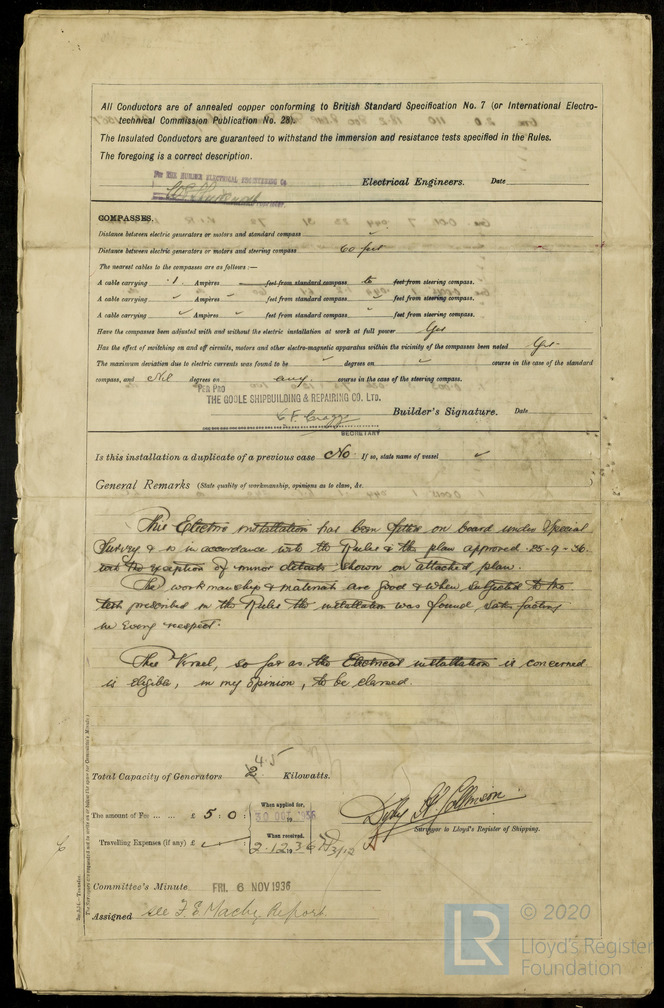 All Conductors are of annealed copper conforming to British Standard Specification No. 7 (or International Electro-
technical Commission Publication No. 28).
The Insulated Conductors are guaranteed to withstand the immersion and resistance tests specified in the Rules.
The foregoing is a correct description.
For THE HUMBER ELECTRICAL ENGINEERING Co
Electrical Engineers. Date
COMPASSES.
Distance between electric generators or motors and standard compass
Distance between electric generators or motors and steering compass 60 feet
The nearest cables to the compasses are as follows:—
A cable carrying .1 Ampères feet from standard compass feet from steering compass.
A cable carrying Ampères feet from standard compass feet from steering compass.
A cable carrying Ampères feet from standard compass feet from steering compass.
Have the compasses been adjusted with and without the electric installation at work at full power Yes
Has the effect of switching on and off circuits, motors and other electro-magnetic apparatus within the vicinity of the compasses been noted Yes
The maximum deviation due to electric currents was found to be degrees on course in the case of the standard
compass, and Nil degrees on any course in the case of the steering compass.
PER PRO
THE GOOLE SHIPBUILDING & REPAIRING CO. LTD.
Builder's Signature. Date
SECRETARY
Is this installation a duplicate of a previous case No If so, state name of vessel
General Remarks (State quality of workmanship, opinions as to class, &c.
This Electric installation has been fitted on board under Special
Survey & is in accordance with the Rules & the plan approved 25-9-36
with the exception of minor details, shown on attached plan.
The workmanship & materials are good & when subjected to the
test prescribed in the Rules the installation was found satisfactory
in every respect.
This Vessel, so far as the Electrical installation is concerned
is eligible, in my opinion, to be classed.
Total Capacity of Generators 4.5 Kilowatts.
The amount of Fee £ 5 : 0 : When applied for, 30 OCT 1936
Travelling Expenses (if any) £ When received, 2.12.36
Surveyor to Lloyd's Register of Shipping.
Committee's Minute FRI. 6 NOV 1936
Assigned see F.E. Machy Report
© 2020
LR
Lloyd's Register
Foundation